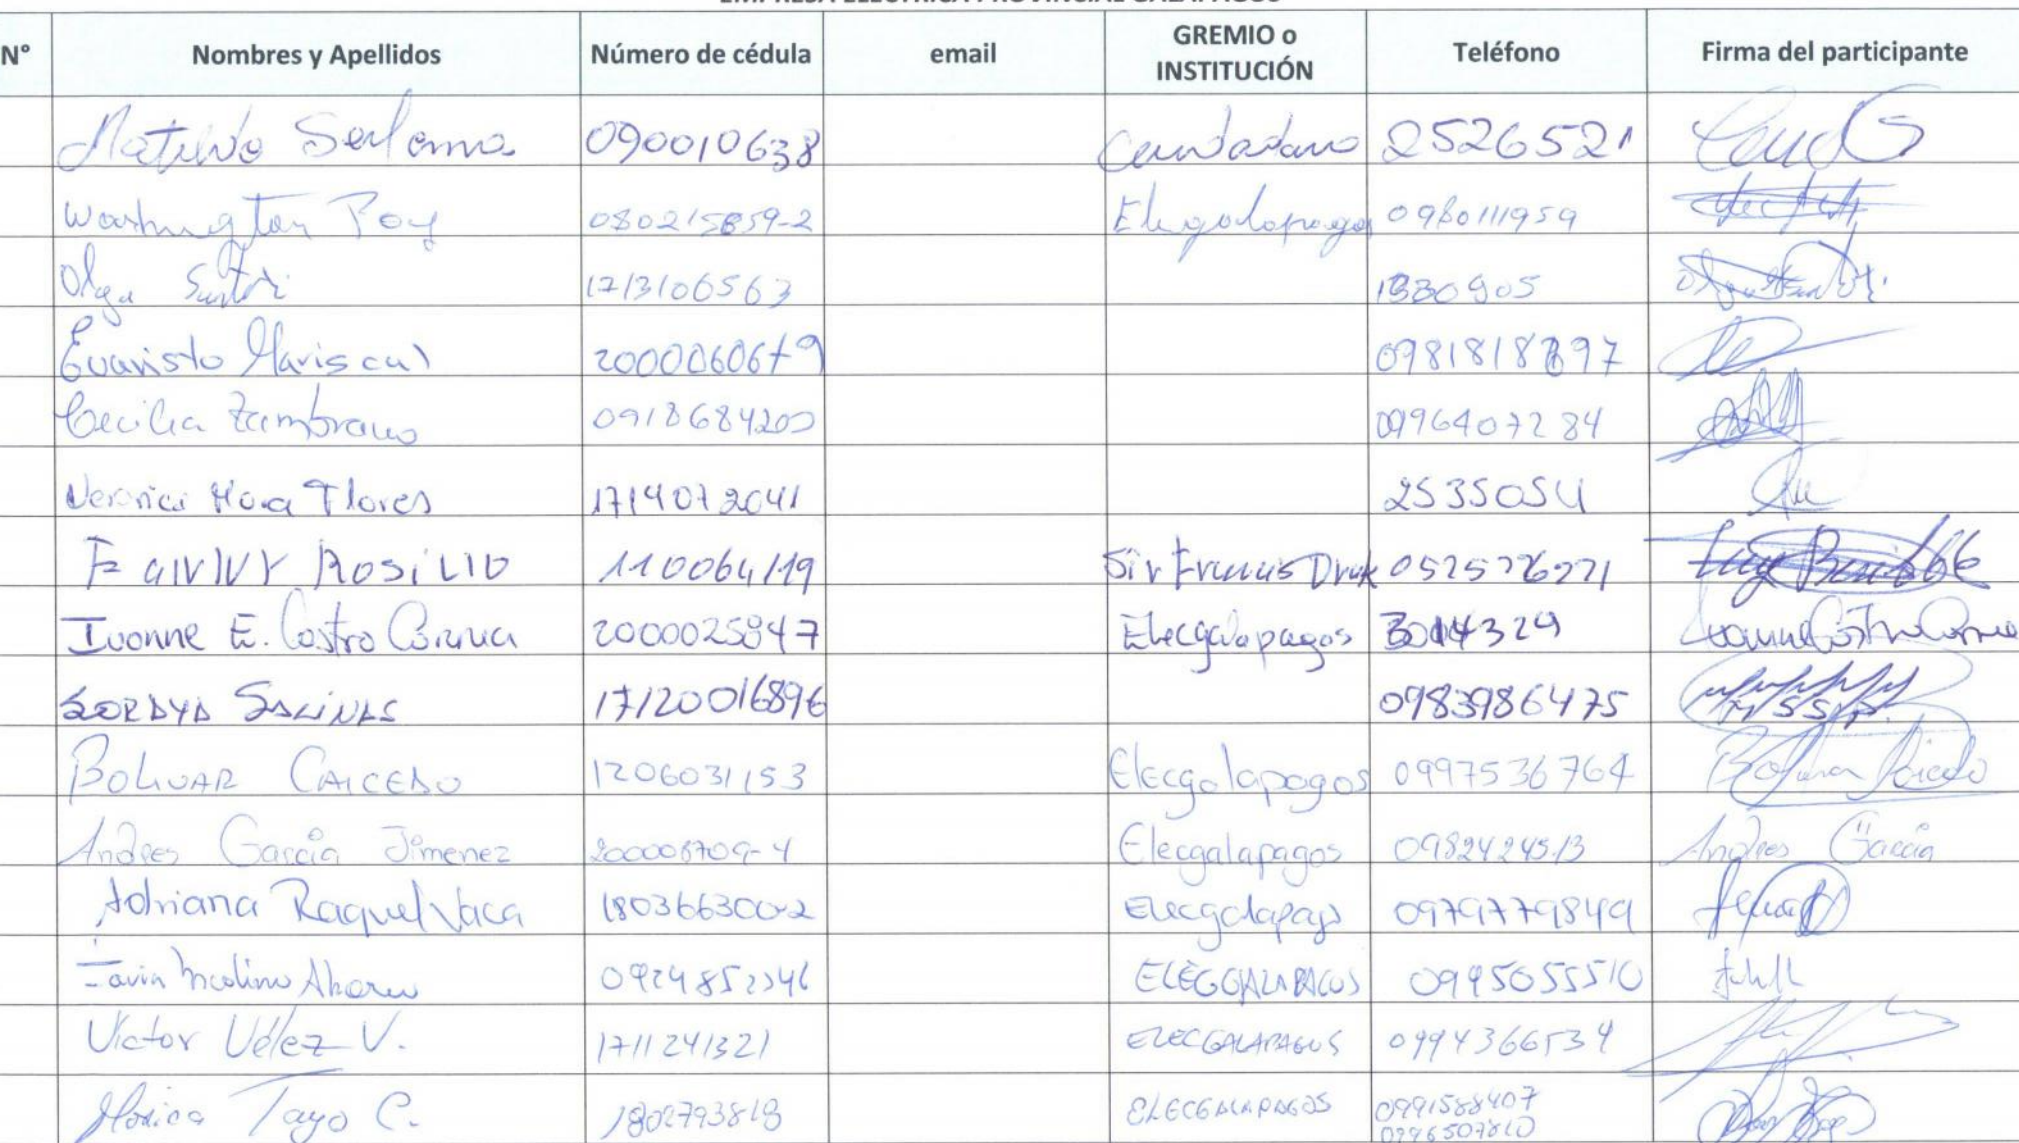 EMPRESA ELÉCTRICA PROVINCIAL GALÁPAGOS
N° Nombres y Apellidos Número de cédula email GREMIO o INSTITUCIÓN Teléfono Firma del participante
090010638 2526521
Washington 080215859-2 Elegalapagos 0980111959
Olga 1713106563 1330905
Evaristo Mariscal 2000060679 0981818897
Cecilia Zambrano 0918684200 0996407284
Veronica Mora Flores 1714072041 2535054
ROSILLO 110064119 Sir Francis Drak 052526271
Ivonne E. Castro 2000025847 Elecgalapagos 3014329 Ivonne Castro
SORAYA SALINAS 17120016896 0983986475
BOLIVAR CAICEDO 1206031153 Elecgalapagos 0997536764 Bolivar Caicedo
Andres García Jimenez Elecgalapagos 0982424513 Andres García
Adriana Raquel Vaca 180366300-2 Elecgalapags 0979779849
0924852346 ELECGALAPAGOS 0995055510
Victor Vélez V. 1711241321 ELECGALAPAGOS 0994366534
Monica Tayo C. 1802793818 ELECGALAPAGOS 0991588407
0996507810